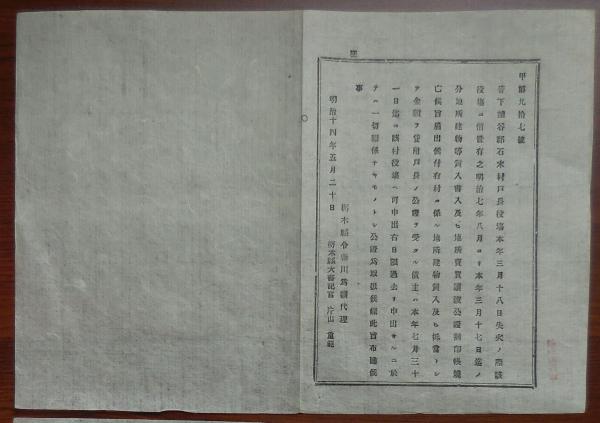 甲第九拾七號
管下鹽谷郡石末村戸長役場本年三月十八日失火ノ際該
役場ニ備置有之明治七年八月ヨリ本年三月十七日迄ノ
分地所建物等質入書入及ヒ地所賣買讓渡公證割印帳燒
亡候旨屆出候付右村ニ係ル地所建物質入及ヒ抵當トシ
テ金額ヲ貸附戸長ノ公證ヲ受タル債主ハ本年七月三十
一日迄ニ該村役場ヘ可申出右日限過去リ申出サルニ於
テハ一切關係ナキモノトシ公證爲取扱候條此旨布達候
事
明治十四年五月二十日
栃木縣令藤川爲親代理
栃木縣大書記官 片山重範